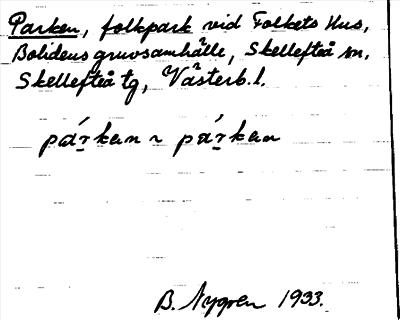 Parken, folkpark vid Folkets Hus,
Bolidens gruvsamhälle, Skellefteå sn,
Skellefteå tg, Västerb. l.
pár̲kan ~ pár̲kan
B. Nygren 1933.